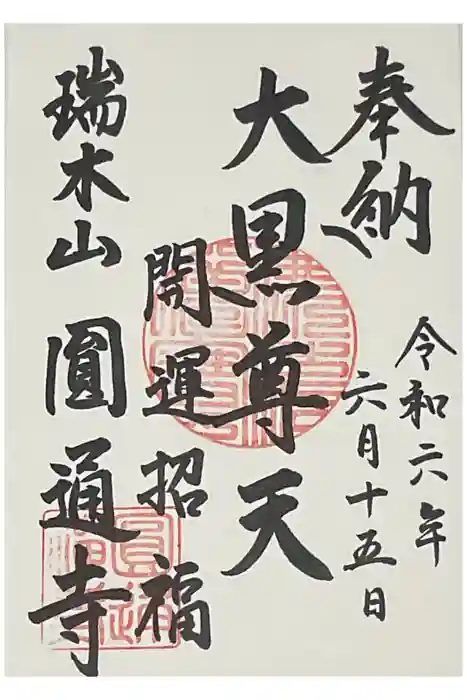 奉納
令和六年
六月十五日
大黒尊天
開運招福
瑞木山 圓通寺